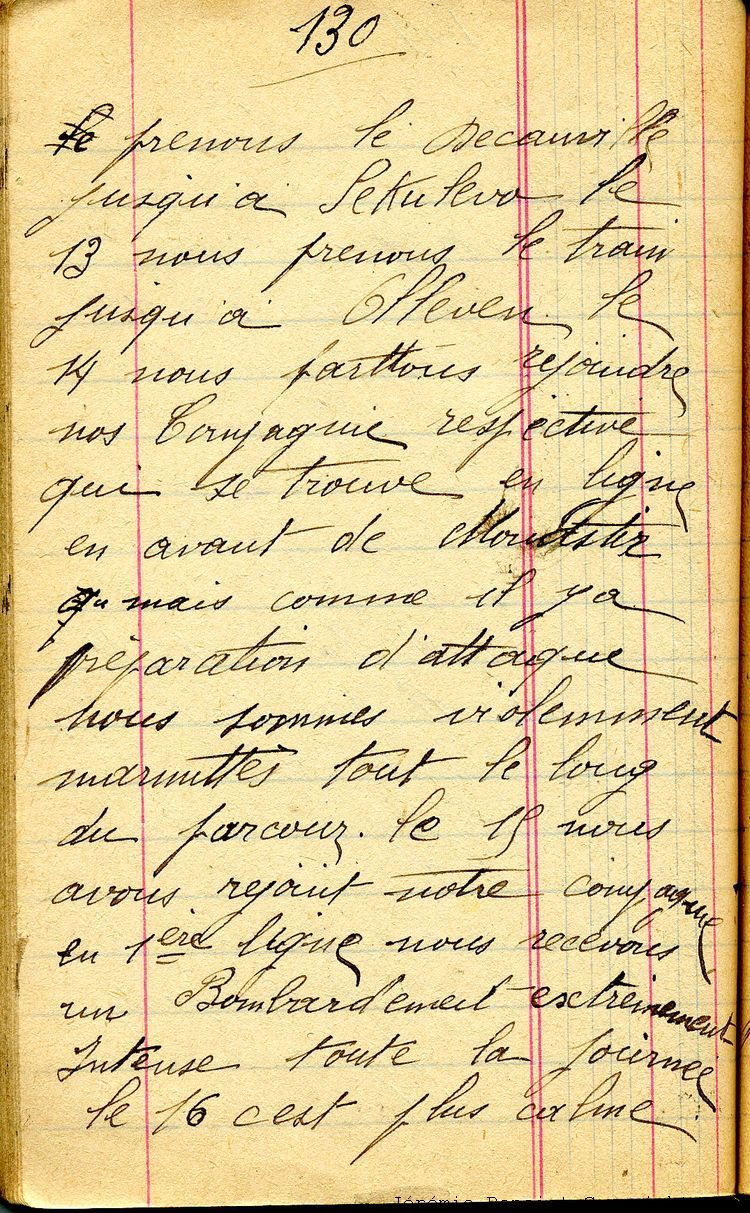 130
prenons le Decauville
jusqu'a Sekulevo le
13 nous prenons le train
jusqu'a Olleven le
14 nous parttons rejoindre
nos Compagnie respective
qui se trouve en ligne
en avant de Monastir
mais comme il ya
préparation d'attaque
nous sommes violemment
marmittès tout le long
du parcour. le 15 nous
avons rejoint notre compagnie
en 1ère ligne nous recevons
un Bombardement extremement
Intense toute la journée
le 16 c'est plus calme